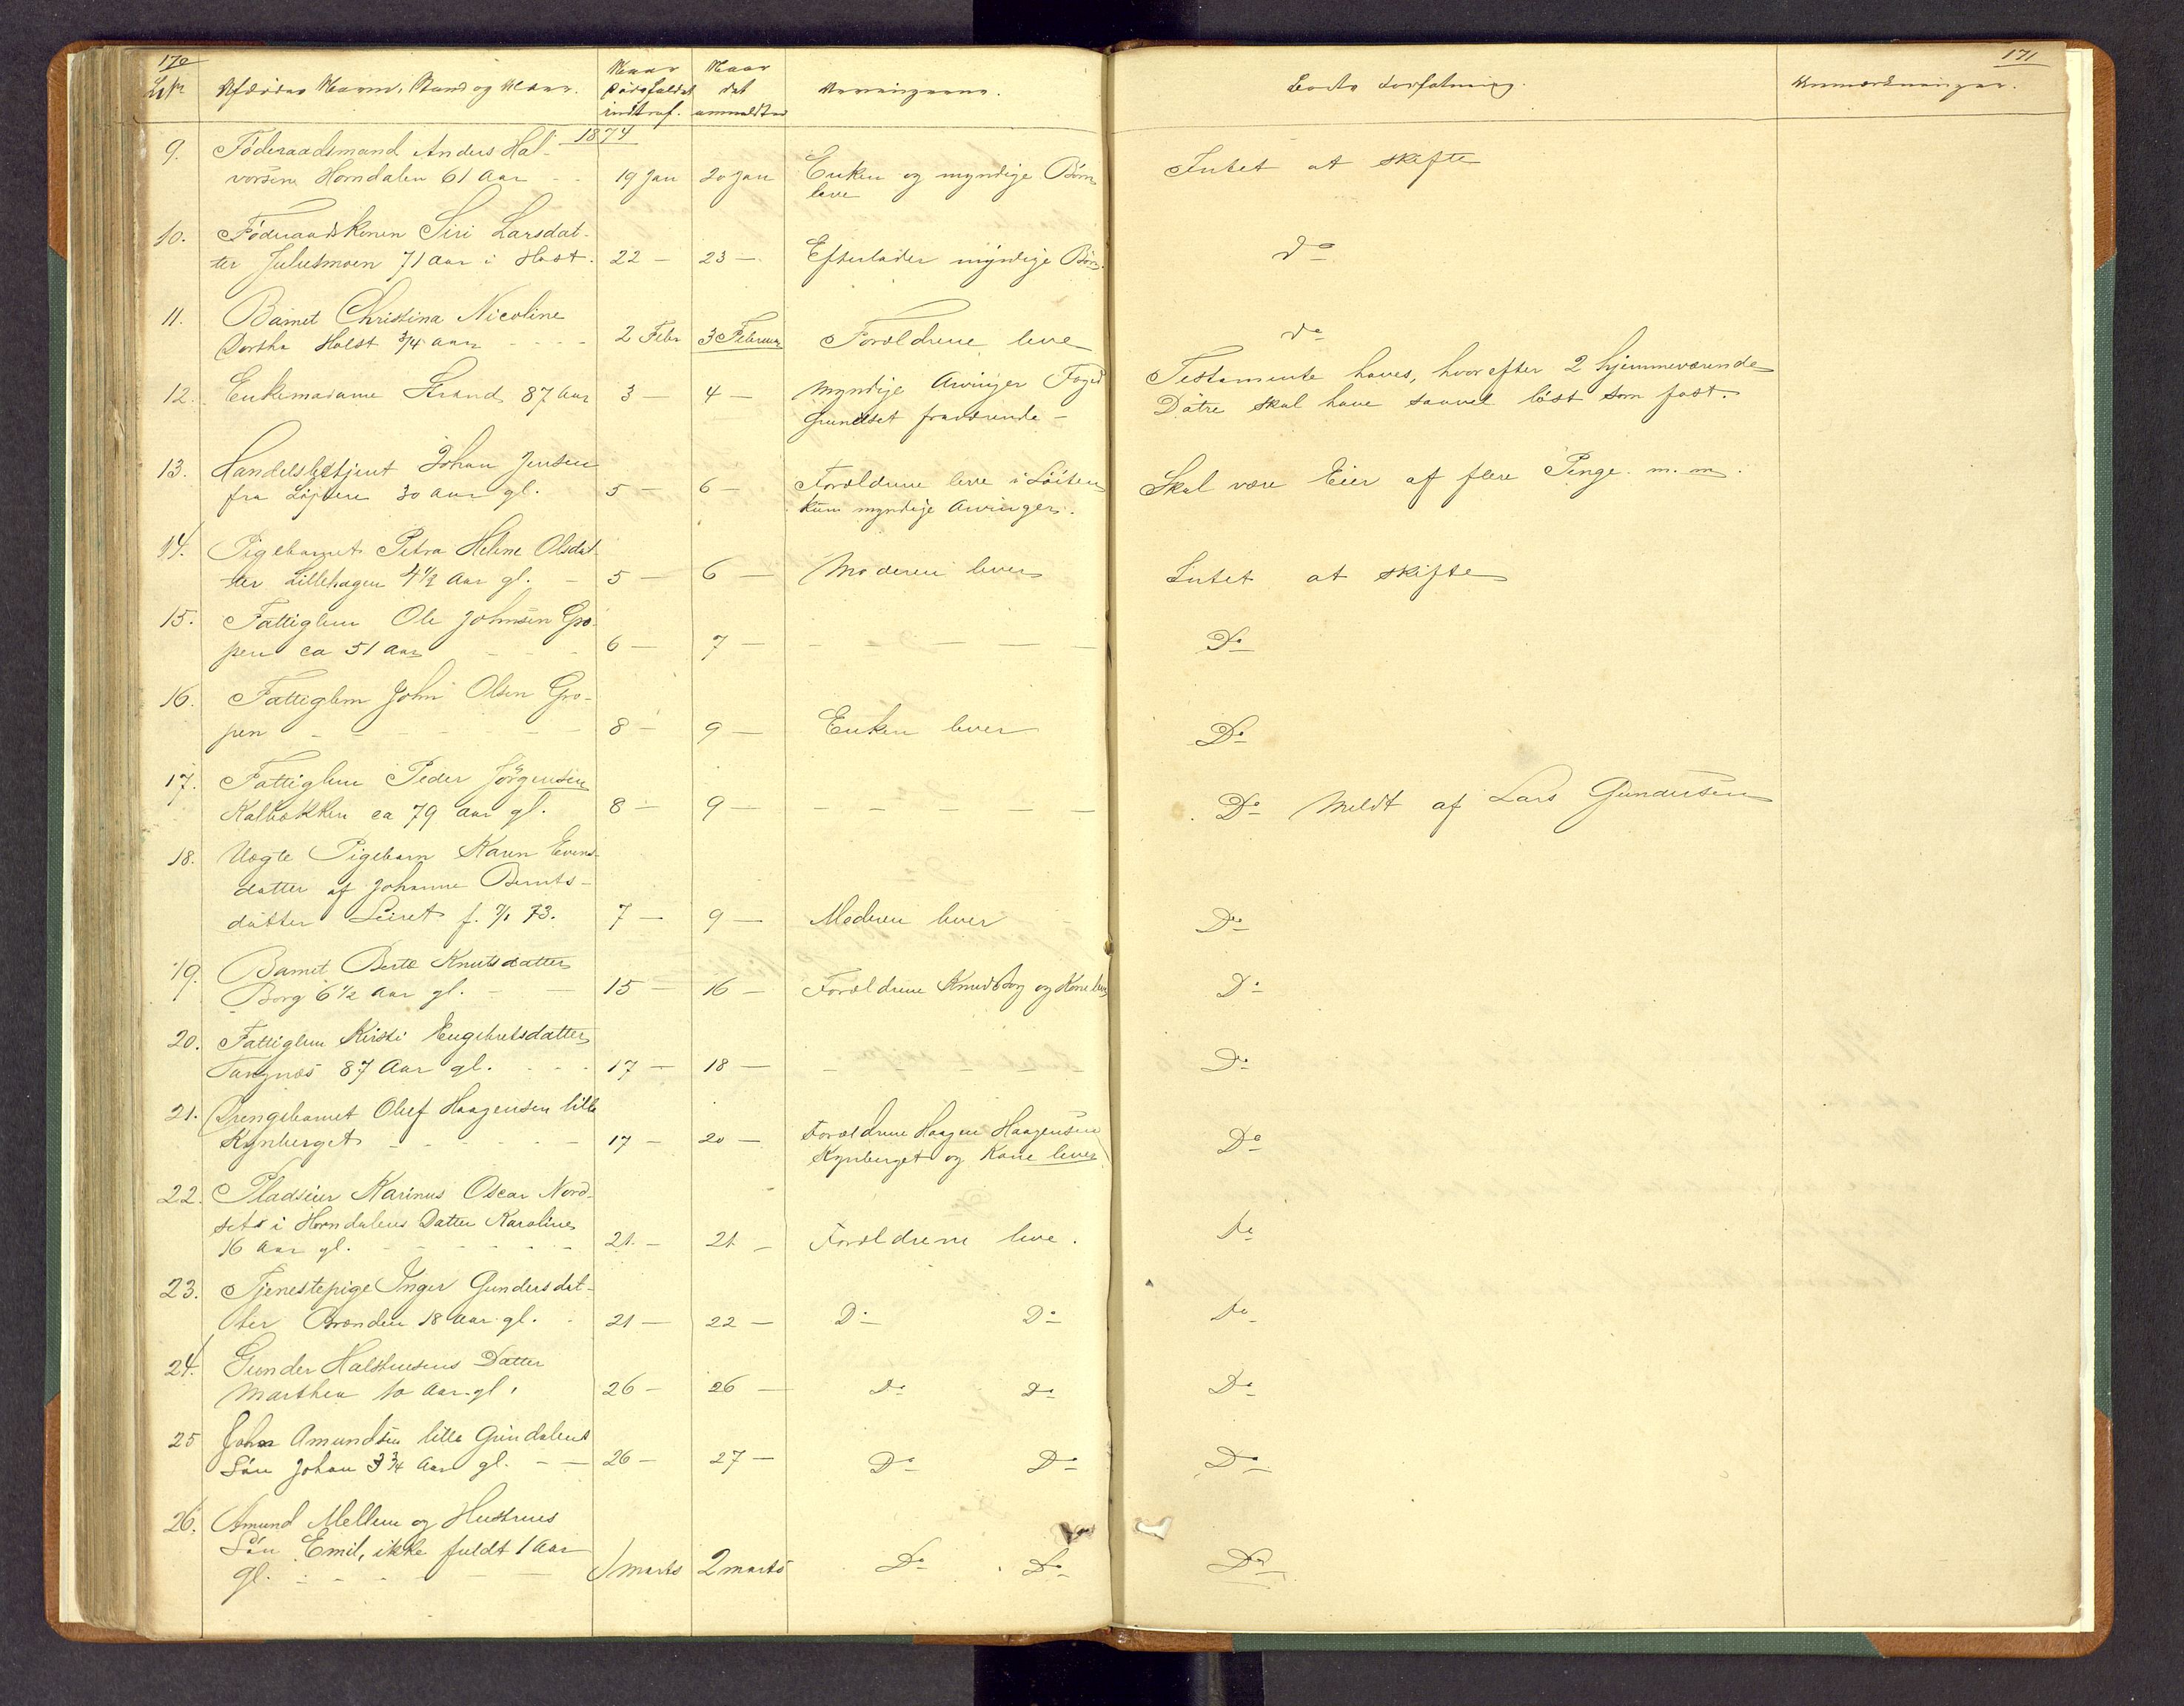 170
171
Lbn Afdødes Navn, Stand og Alder. Naar Dødsfaldet indtraf. Naar det anmeldtes Arvingerne. Boets Forfatning. Anmærkninger.
1874
9. Føderaadsmand Anders Hal-
vorsen Horndalen 61 Aar - - 19 Jan 20 Jan Enken og myndige Børn Intet at skifte
leve
10. Føderaadskonen Siri Larsdat-
ter Juliusmoen 71 Aar i Høst. 22 - 23 - Efterlader myndige Børn. do
11. Barnet Christina Nicoline
Dorthe Holst 3/4 Aar - - - - 2 Febr 3 Februar Forældrene leve do
12. Enkemadame Strand 87 Aar 3 - 4 - Myndige Arvinger Foged Testamente haves, hvorefter 2 hjemmeværende
Grundset fraværende - Døtre skal have saavel løst som fast.
13. Handelsbetjent Johan Jensen
fra Løjten 30 Aar gl. 5 - 6 - Forældrene leve i Løiten Skal være Eier af flere Penge m. m.
kun myndige Arvinger.
14. Pigebarnet Petra Helene Olsdat-
ter Lillehagen 4 1/2 Aar gl. - 5 - 6 - Moderen lever Intet at skifte
15. Fattiglem Ole Johnsen Gro-
pen ca 51 Aar - - - 6 - 7 - - Do - - - Do
16. Fattiglem John Olsen Gro-
pen - - - - - - - 8 - 9 - Enken lever Do
17. Fattiglem Peder Jørgensen
Kalbækken ca 79 Aar gl. 8 - 9 - - - - - - Do Meldt af Lars Gundersen
18. Uægte Pigebarn Karen Evens-
datter af Johanne Bernts-
datter Leiret f. 7/1 73. 7 - 9 - Moderen lever Do
19. Barnet Berte Knutsdatter
Borg 6 1/2 Aar gl. - - 15 - 16 - Forældrene Knud Borg og Kone lever Do
20. Fattiglem Kirsti Engebretsdatter
Tangnæs 87 Aar gl. - - - 17 - 18 - - - - - - Do
21. Drengebarnet Oluf Haagensen lille
Kynberget - - - - - - 17 - 20 - Forældrene Haagen Haagensen Do
Kynberget og Kone lever
22. Pladseier Karinus Oscar Nord-
sets i Horndalens Datter Karoline
16 Aar gl. - - - - - - 21 - 21 - Forældrene leve. Do
23. Tjenestepige Inger Gundersdat-
ter Brænden 18 Aar gl. - 21 - 22 - Do Do Do
24. Gunder Halstensens Datter
Marthea 10 Aar gl. 26 - 26 - Do Do Do
25 John Amundsen lille Grindalens
Søn Johan 3 3/4 Aar gl. - - 26 - 27 - Do Do Do
26. Amund Mellem og Hustrues
Søn Emil, ikke fuldt 1 Aar
gl. - - - - - 1 Marts 2 Marts Do Do Do